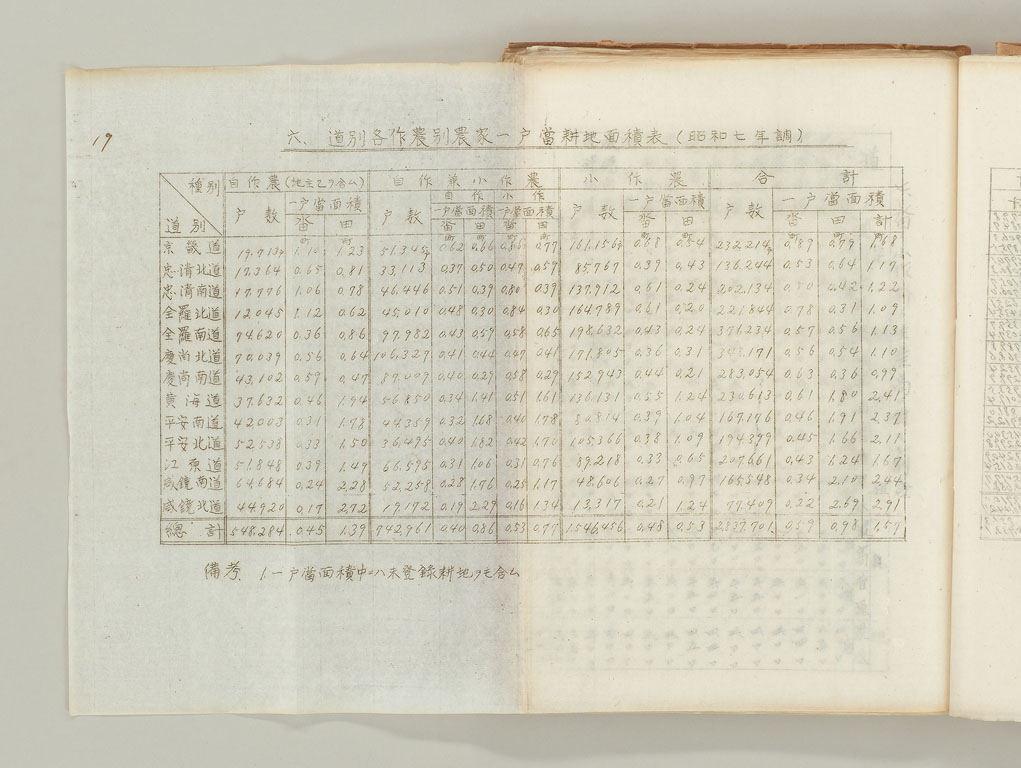 19
六、道別各作農別農家一戸當耕地面積表(昭和七年調)
種別 自作農(地主乙ヲ含ム) 自作兼小作農 小作農 合計
自作 小作
戸数 一戸當面積 戸数 一戸當面積 一戸當面積 戸数 一戸當面積 戸数 一戸當面積
道別 畓 田 畓 田 畓 田 畓 田 畓 田 計
京畿道 1.10 1.23 0.62 0.66 0.86 0.77 0.68 0.54 0.87 0.79 1.68
忠清北道 17,364 0.65 0.81 33,113 0.37 0.50 0.47 0.57 85,767 0.39 0.43 136,244 0.53 0.64 1.17
忠清南道 17,776 1.06 0.78 46,446 0.51 0.39 0.80 0.39 137,912 0.61 0.24 202,134 0.42 1.22
全羅北道 12,045 1.12 0.62 45,010 0.48 0.30 0.84 0.30 164,789 0.61 0.20 221,844 0.78 0.31 1.09
全羅南道 94,620 0.36 0.86 97,982 0.43 0.59 0.58 0.65 198,632 0.43 0.24 0.57 0.56 1.13
慶尚北道 70,039 0.56 0.64 106,327 0.41 0.44 0.47 0.41 171,805 0.36 0.31 0.56 0.54 1.10
慶尚南道 43,102 0.57 0.47 87,009 0.40 0.29 0.58 0.29 152,943 0.44 0.21 283,054 0.63 0.36 0.99
黄海道 37,632 0.46 1.94 56,850 0.34 1.41 0.51 1.61 136,131 0.55 1.24 230,613 0.61 1.80 2.41
平安南道 42,003 0.31 1.78 44,359 0.32 1.68 0.40 1.78 80,814 0.39 1.04 167,176 0.46 1.91 2.37
平安北道 52,538 0.33 1.50 36,495 0.40 1.82 0.42 1.70 105,366 0.38 1.09 194,399 0.45 1.66 2.11
江原道 51,848 0.39 1.49 66,595 0.31 1.06 0.31 0.76 89,218 0.33 0.65 207,661 0.43 1.24 1.67
咸鏡南道 64,684 0.24 2.28 52,258 0.23 1.76 0.25 1.17 48,606 0.27 0.97 165,548 0.34 2.10 2.44
咸鏡北道 44,920 0.17 2.72 19,172 0.19 2.29 0.16 1.34 13,317 0.21 1.24 77,409 0.22 2.69 2.91
總計 548,284 0.45 1.39 742,961 0.40 0.86 0.53 0.77 1,546,456 0.48 0.53 2,837,701 0.59 0.98 1.57
備考 1.一戸當面積中ニハ未登録耕地ヲモ含ム